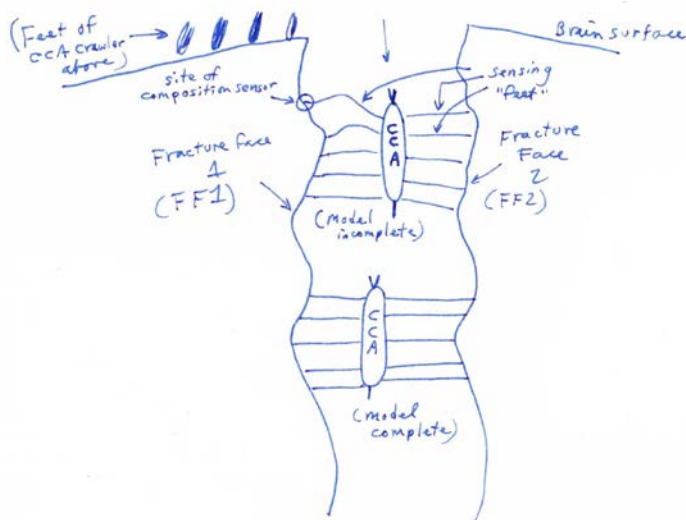 (Feet of
CCA crawler
above)
Brain surface
site of
composition sensor
sensing
"feet"
CCA
Fracture face
1
(FF1)
Fracture
Face
2
(FF2)
(model
incomplete)
CCA
(model
complete)